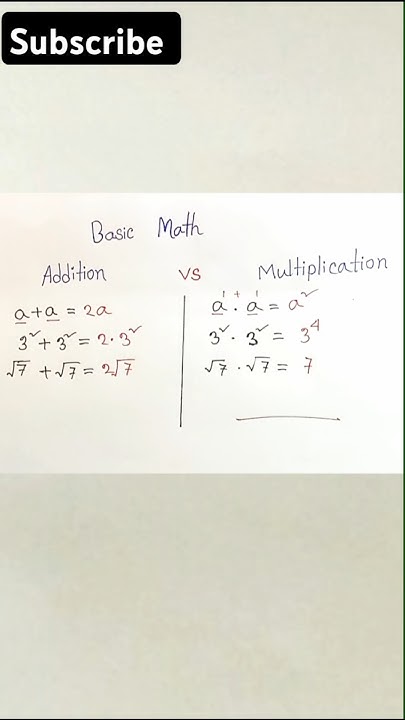 Subscribe
Basic Math
Addition vs Multiplication
a + a = 2a
3² + 3² = 2·3²
√7 + √7 = 2√7
a¹ ⁺ · a¹ = a²
3² · 3² = 3⁴
√7 · √7 = 7